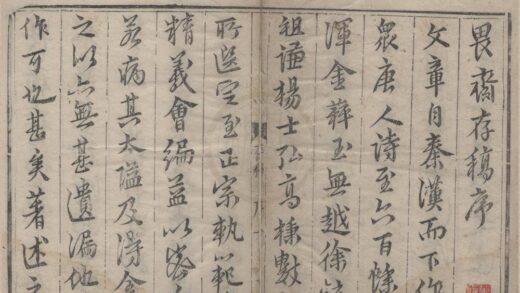 畏齋存稿序
文章自秦漢而下作
衆唐人詩至六百餘
渾金璞玉無越徐
祖謙楊士弘高棅數
所選定至正宗執範
精義會編益以
若病其太隘及得
之以六無甚遺漏他
作可也甚矣著述之